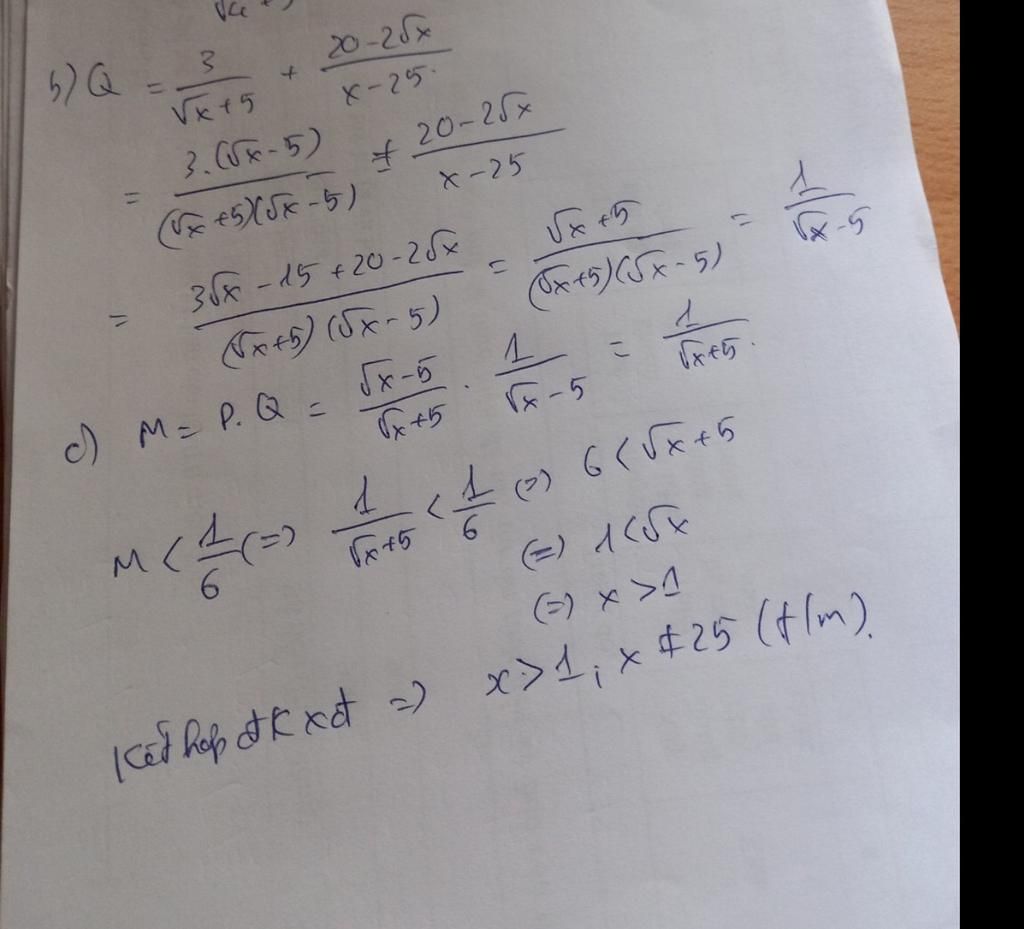 b) Q = 3/(√x+5) + (20-2√x)/(x-25).
= 3.(√x-5)/((√x+5)(√x-5)) + (20-2√x)/(x-25)
= (3√x-15+20-2√x)/((√x+5)(√x-5)) = (√x+5)/((√x+5)(√x-5)) = 1/(√x-5)
c) M = P.Q = (√x-5)/(√x+5) . 1/(√x-5) = 1/(√x+5).
M < 1/6 (=) 1/(√x+5) < 1/6 (=) 6 < √x+5
(=) 1<√x
(=) x >1
Kết hợp đkxđ => x>1; x ≠ 25 (t/m).